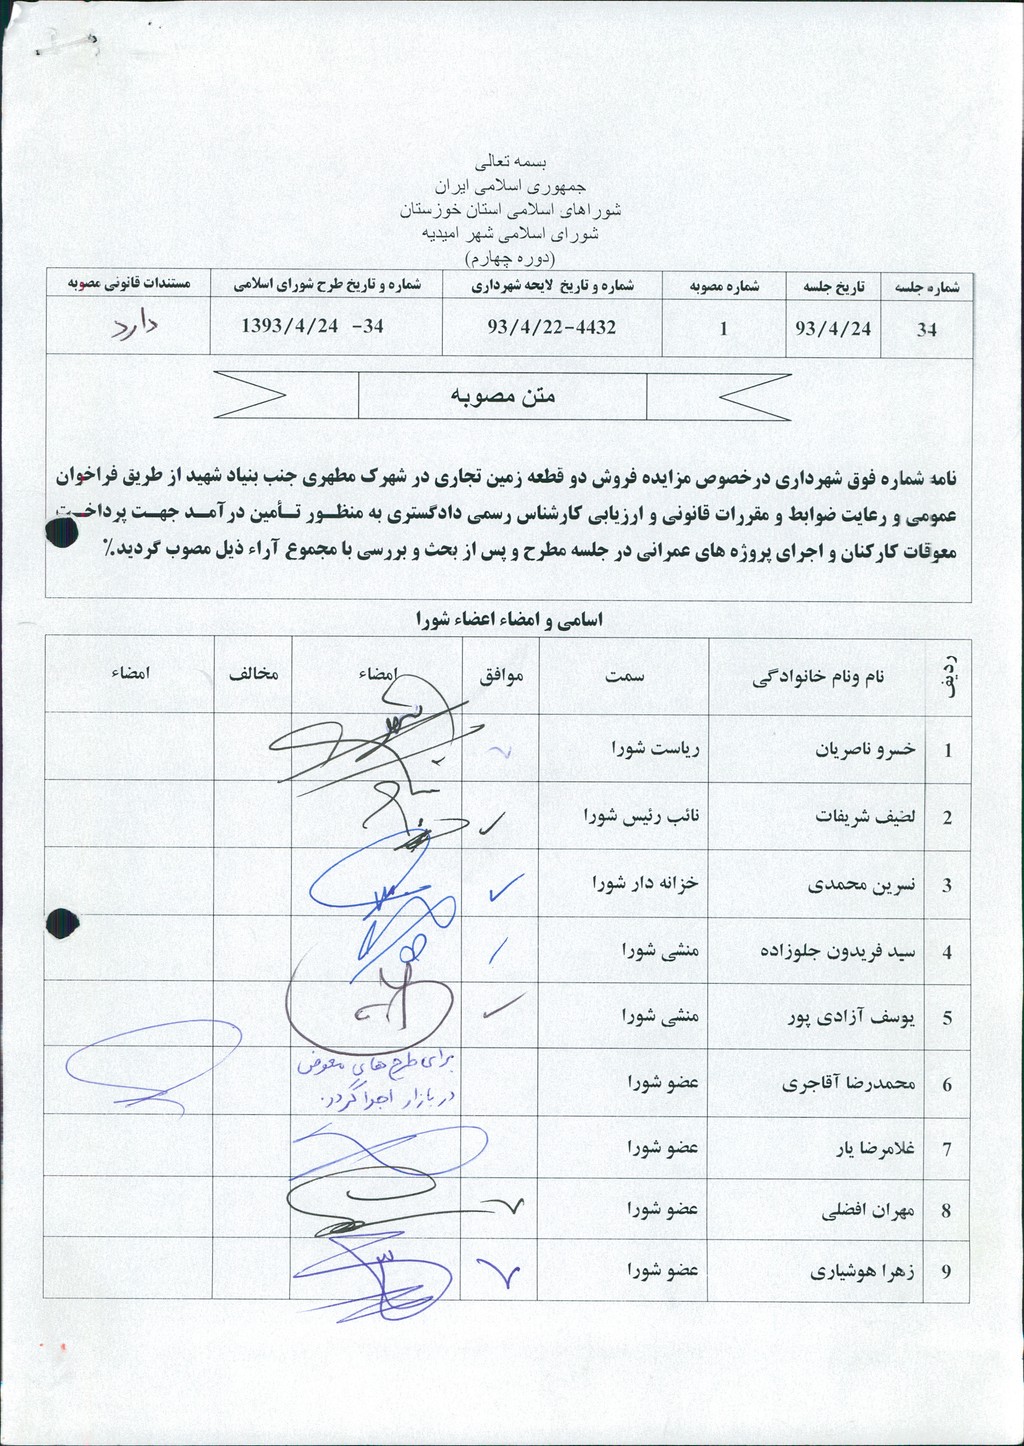 بسمه تعالی
جمهوری اسلامی ایران
شوراهای اسلامی استان خوزستان
شورای اسلامی شهر امیدیه
(دوره چهارم)
شماره جلسه تاریخ جلسه شماره مصوبه شماره و تاریخ لایحه شهرداری شماره و تاریخ طرح شورای اسلامی مستندات قانونی مصوبه
34 93/4/24 1 93/4/22-4432 1393/4/24 -34 دارد
متن مصوبه
نامه شماره فوق شهرداری درخصوص مزایده فروش دو قطعه زمین تجاری در شهرک مطهری جنب بنیاد شهید از طریق فراخوان
عمومی و رعایت ضوابط و مقررات قانونی و ارزیابی کارشناس رسمی دادگستری به منظور تأمین درآمد جهت پرداخت
معوقات کارکنان و اجرای پروژه های عمرانی در جلسه مطرح و پس از بحث و بررسی با مجموع آراء ذیل مصوب گردید.%
اسامی و امضاء اعضاء شورا
ردیف نام ونام خانوادگی سمت موافق امضاء مخالف امضاء
1 خسرو ناصریان ریاست شورا
2 لطیف شریفات نائب رئیس شورا
3 نسرین محمدی خزانه دار شورا
4 سید فریدون جلوزاده منشی شورا
5 یوسف آزادی پور منشی شورا
6 محمدرضا آقاجری عضو شورا
برای طرح های معوض
در بازار اجرا گردد.
7 غلامرضا یار عضو شورا
8 مهران افضلی عضو شورا
9 زهرا هوشیاری عضو شورا